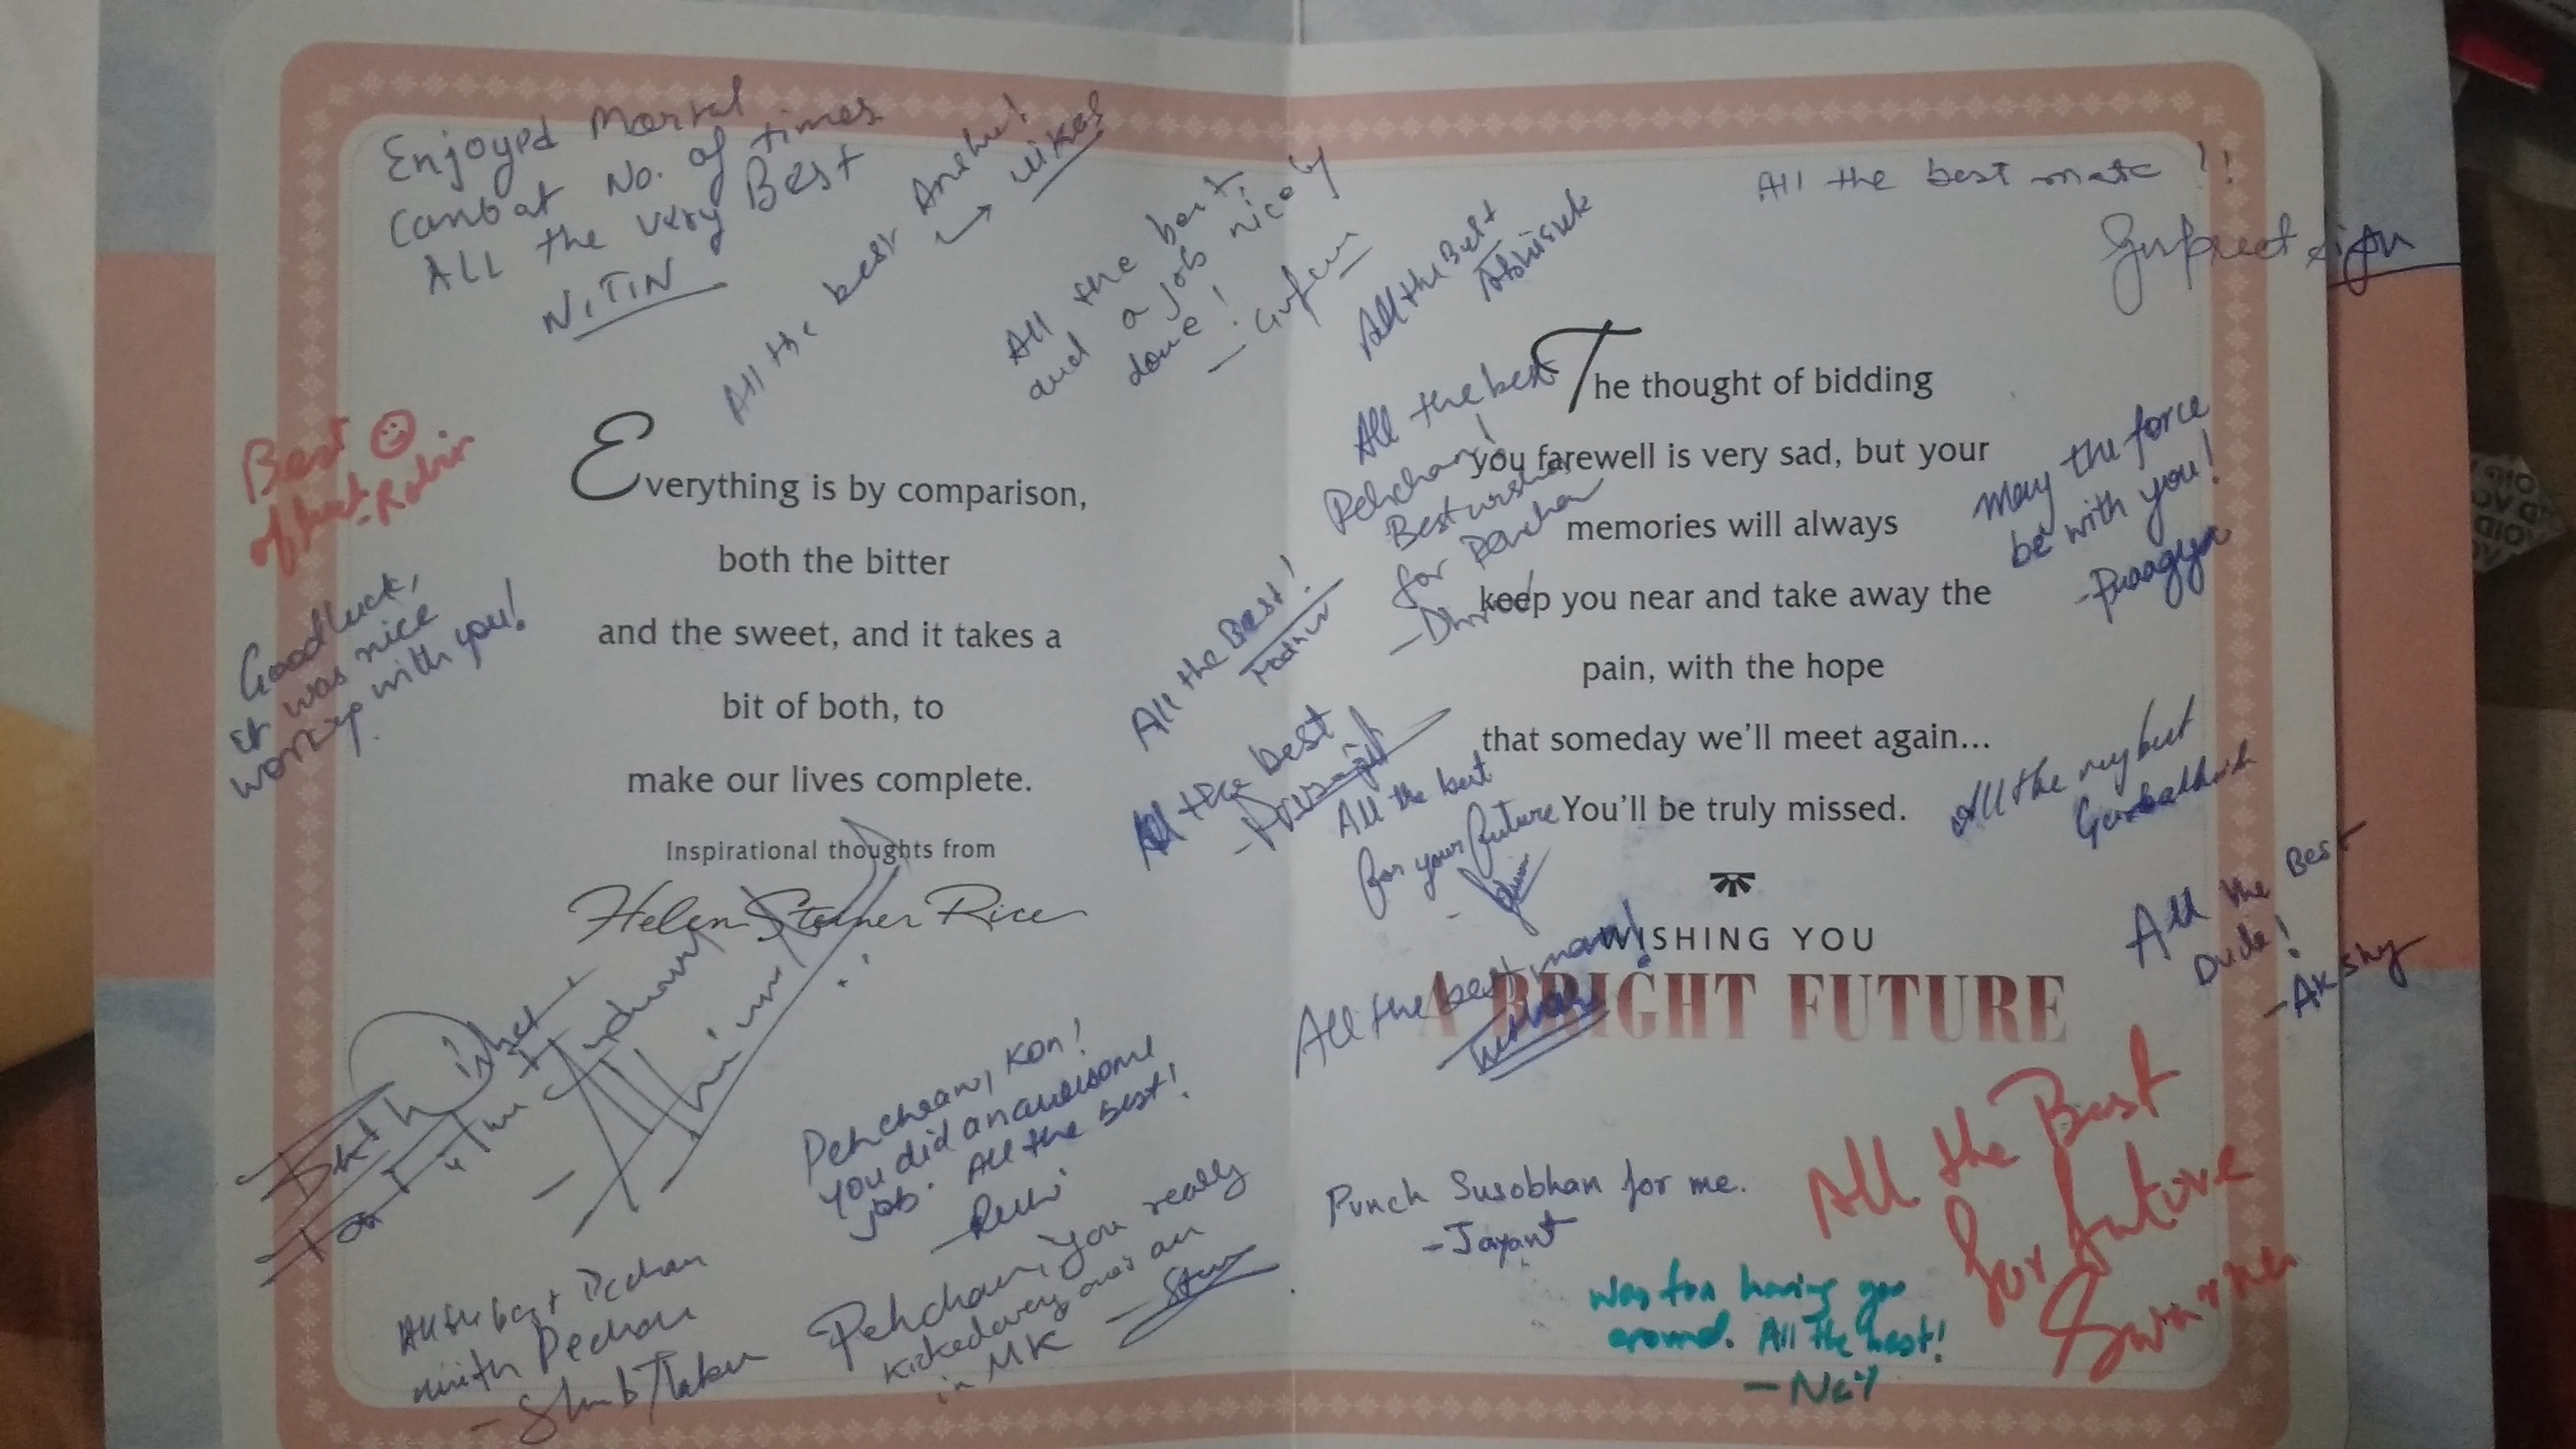 Enjoyed Mortal
Combat No. of times
ALL the very Best
NITIN
All the best
wikes
All the best,
and a job nicely
done!
All the Best
Abhishek
All the best mate !!
Best
of luck
Goodluck,
it was nice
working with you!
Everything is by comparison,
both the bitter
and the sweet, and it takes a
bit of both, to
make our lives complete.
Inspirational thoughts from
Helen Steiner Rice
All the best
Pehchan!
Best wishes
for
All the Best!
All the best
All the best
for your future
All the best, man!
Tushar
The thought of bidding
you farewell is very sad, but your
memories will always
keep you near and take away the
pain, with the hope
that someday we'll meet again...
You'll be truly missed.
WISHING YOU
A BRIGHT FUTURE
May the force
be with you!
-Praagya
All the very best
All the Best
Dude!
-Akshy
For
Pehchaan, Kon!
you did an awesome
job. All the best!
All the best
Pehchan, you really
in MK
Punch Susobhan for me.
-Jayant
Was fun having you
around. All the best!
All the Best
for future